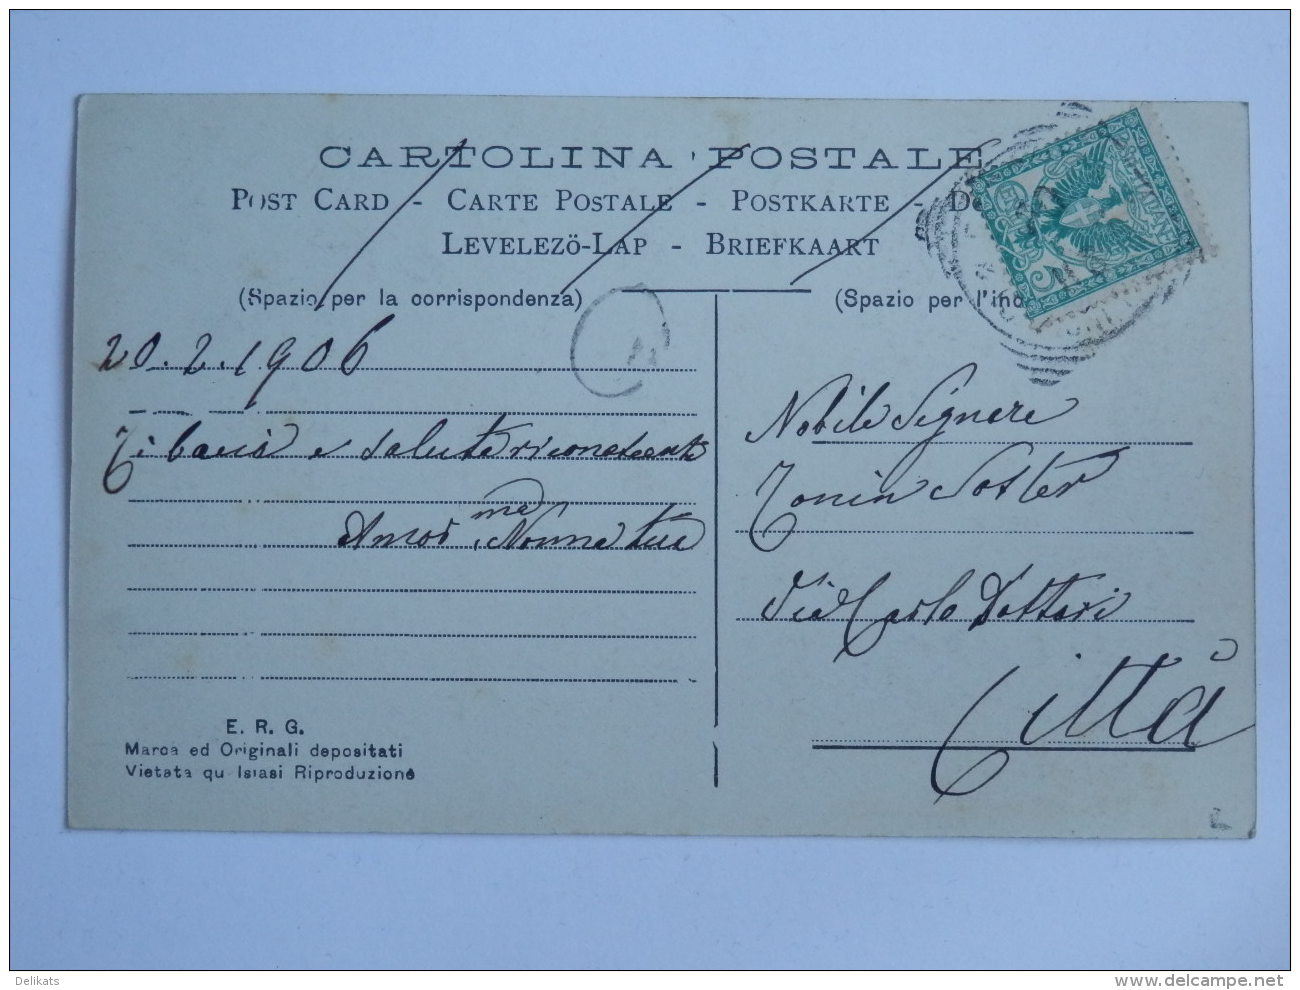 CARTOLINA POSTALE
POST CARD - CARTE POSTALE - POSTKARTE -
LEVELEZÖ-LAP - BRIEFKAART
(Spazio per la corrispondenza)
(Spazio per l'ind
20.2.1906
Ti bacia e saluta riconoscente
ma Nonna tua
Nobile Signore
Tonin Soster
Via Carlo Dottori
Città
E. R. G.
Marca ed Originali depositati
Vietata qu lsiasi Riproduzione
Delikats
delcampe.net